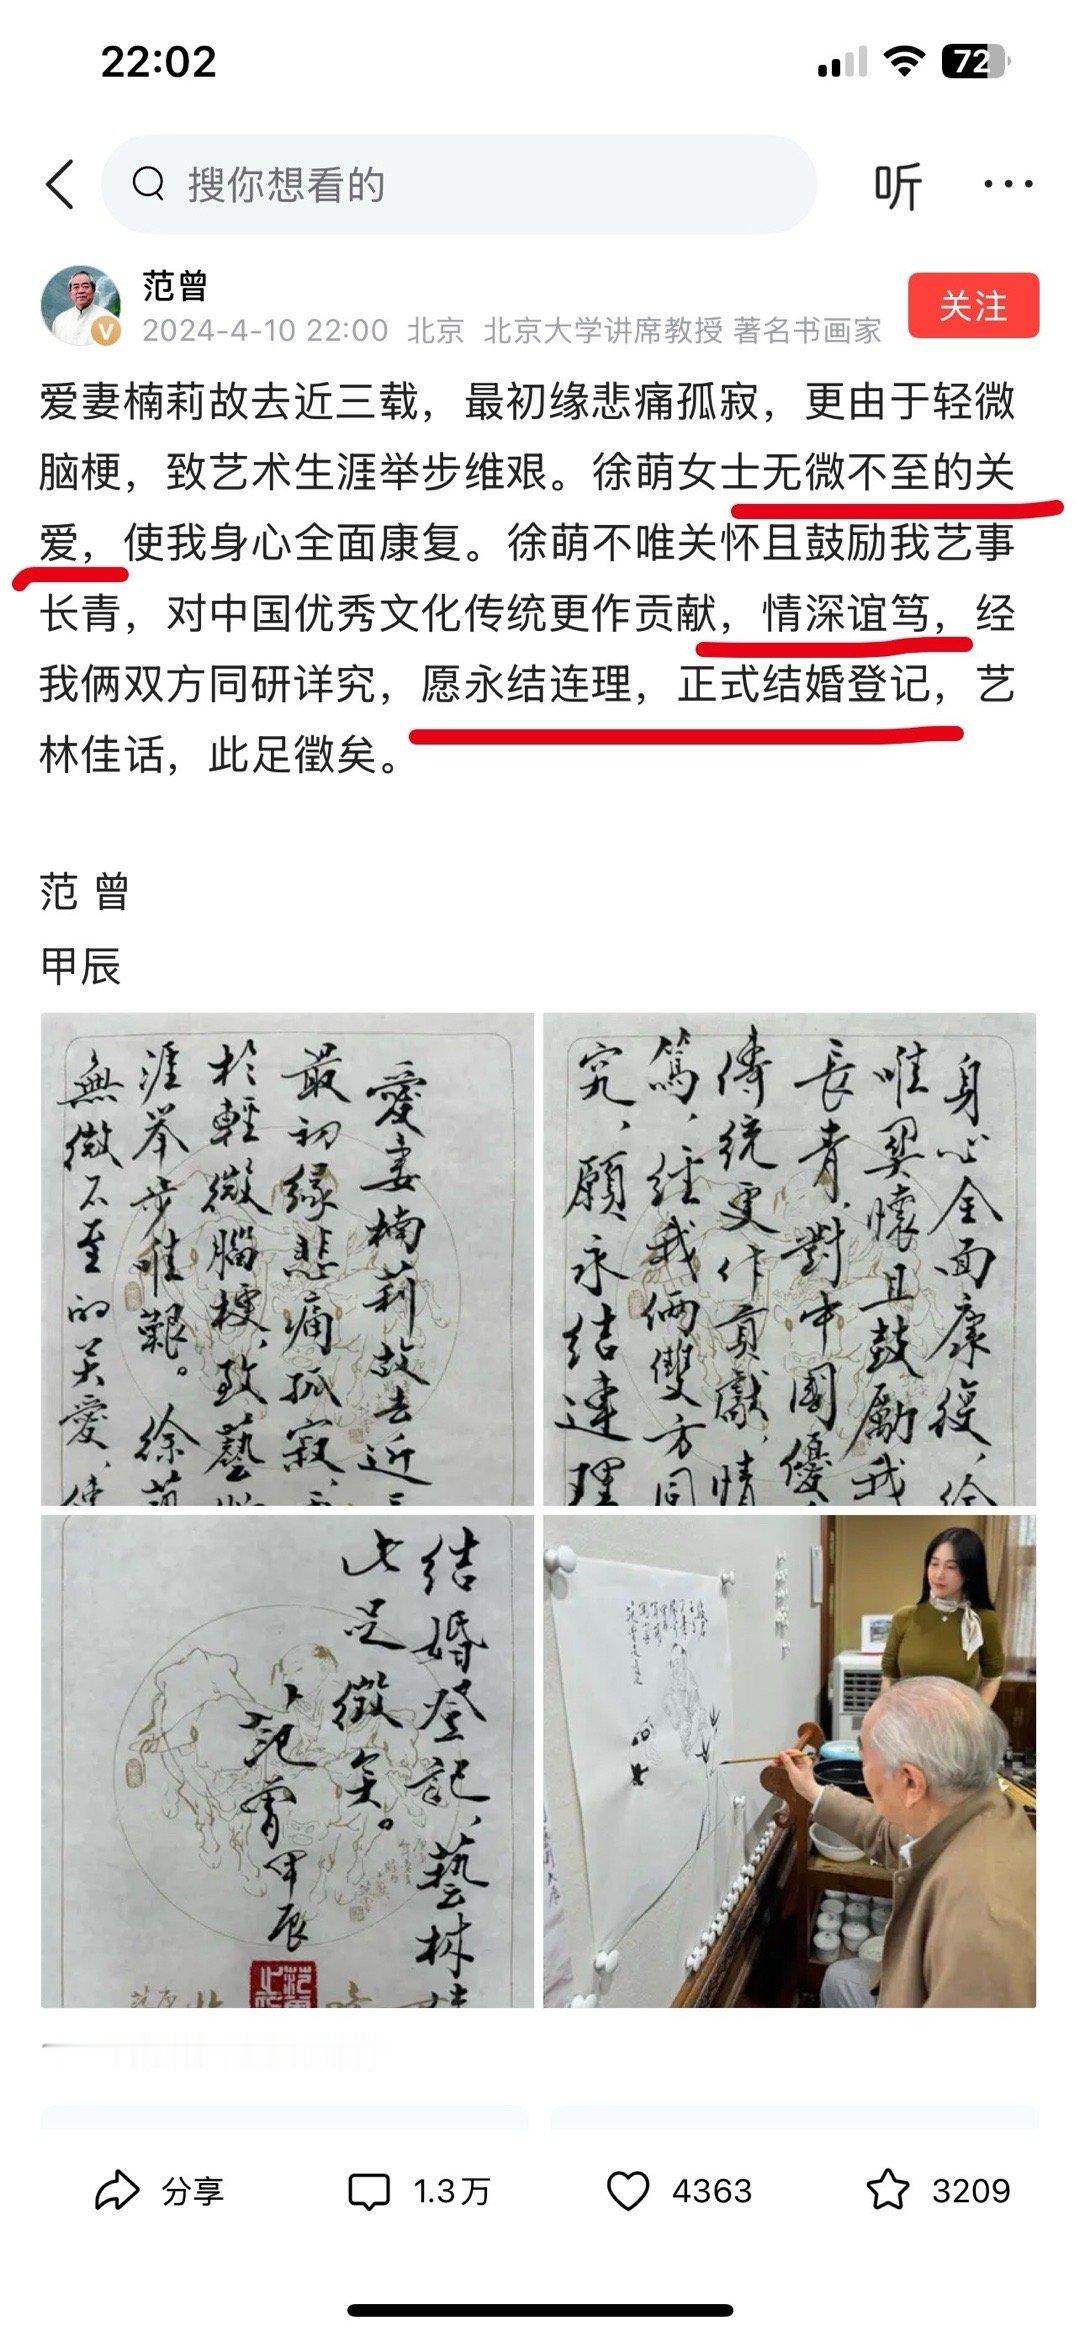 22:02
72
搜你想看的
听
范曾
关注
2024-4-10 22:00 北京 北京大学讲席教授 著名书画家
爱妻楠莉故去近三载，最初缘悲痛孤寂，更由于轻微
脑梗，致艺术生涯举步维艰。徐萌女士无微不至的关
爱，使我身心全面康复。徐萌不唯关怀且鼓励我艺事
长青，对中国优秀文化传统更作贡献，情深谊笃，经
我俩双方同研详究，愿永结连理，正式结婚登记，艺
林佳话，此足徵矣。
范 曾
甲辰
愛妻楠莉故去近
最初缘悲痛孤寂，
於輕微腦梗，致藝
涯举步维艱。徐萌
無微不至的关愛，使
身心全面康復，徐
唯関懷且鼓勵我
長青，對中國優
傳統更作貢獻，情
篤，经我俩雙方同
究，願永结連理
结婚登記，藝林佳
此足徵矣。
范曾甲辰
分享
1.3万
4363
3209